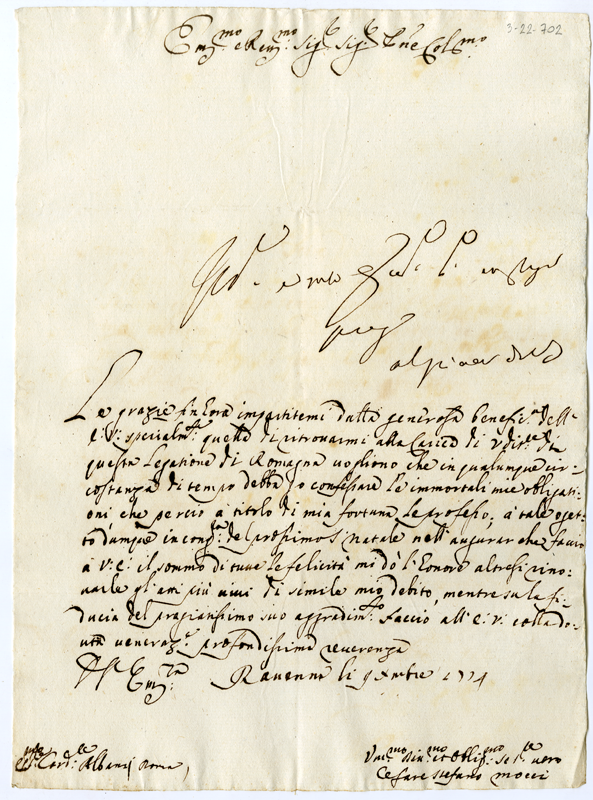 3-22-702
Em.mo e Rev.mo Sig.r Sig.r P.ne Col.mo
Le grazie fin hora impartitemi dalla generosa benefic.a dell'
E: V: specialm.te quella di ritrovarmi alla Carica di Vdit.re di
questa Legatione di Romagna vogliono che in qualunque cir-
costanza di tempo debba io confessare le immortali mie obligati-
oni che perciò a titolo di mia fortuna le professo; a tale ogett-
to dunque in cong.ra del prossimo S. Natale nell'augurar che faccio
à V: E: il sommo di tutte le felicità mi dò l'honore altresi rino-
varle gli atti più vivi di simile mio debito, mentre su la fi-
ducia del pregiatissimo suo aggradim.to faccio all'E: V: colla do-
vuta veneraz.e profondissima reverenza
Em.za Ravenna li 9 Xmbre
Card.le Albani Roma
Vm.mo Div.mo et Oblig.mo Se.re vero
Cesare Stefano Mocci